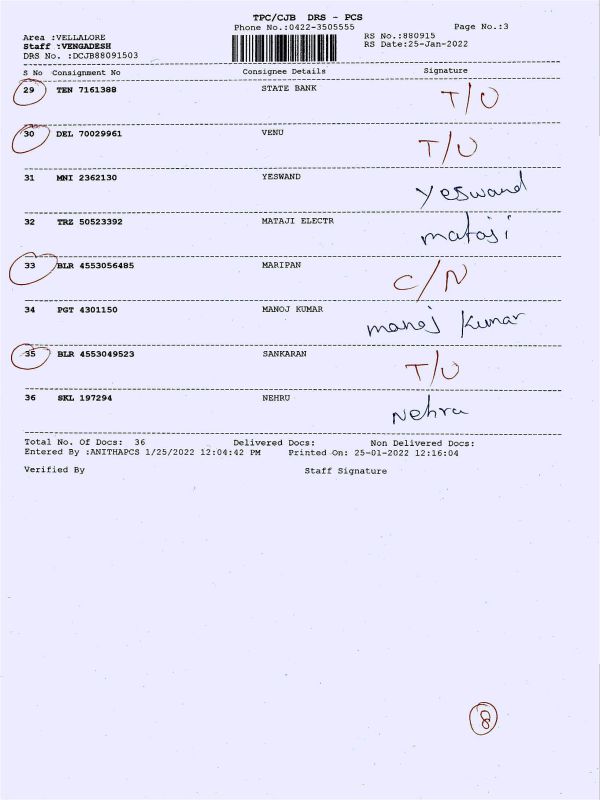 TPC/CJB DRS - PCS
Phone No.:0422-3505555 Page No.:3
Area :VELLALORE RS No.:880915
Staff :VENGADESH RS Date:25-Jan-2022
DRS No. :DCJB88091503
S No Consignment No Consignee Details Signature
29 TEN 7161388 STATE BANK T/O
30 DEL 70029961 VENU T/O
31 MNI 2362130 YESWAND Yeswand
32 TRZ 50523392 MATAJI ELECTR mataji
33 BLR 4553056485 MARIPAN C/N
34 PGT 4301150 MANOJ KUMAR manoj kumar
35 BLR 4553049523 SANKARAN T/O
36 SKL 197294 NEHRU Nehru
Total No. Of Docs: 36 Delivered Docs: Non Delivered Docs:
Entered By :ANITHAPCS 1/25/2022 12:04:42 PM Printed On: 25-01-2022 12:16:04
Verified By Staff Signature
8